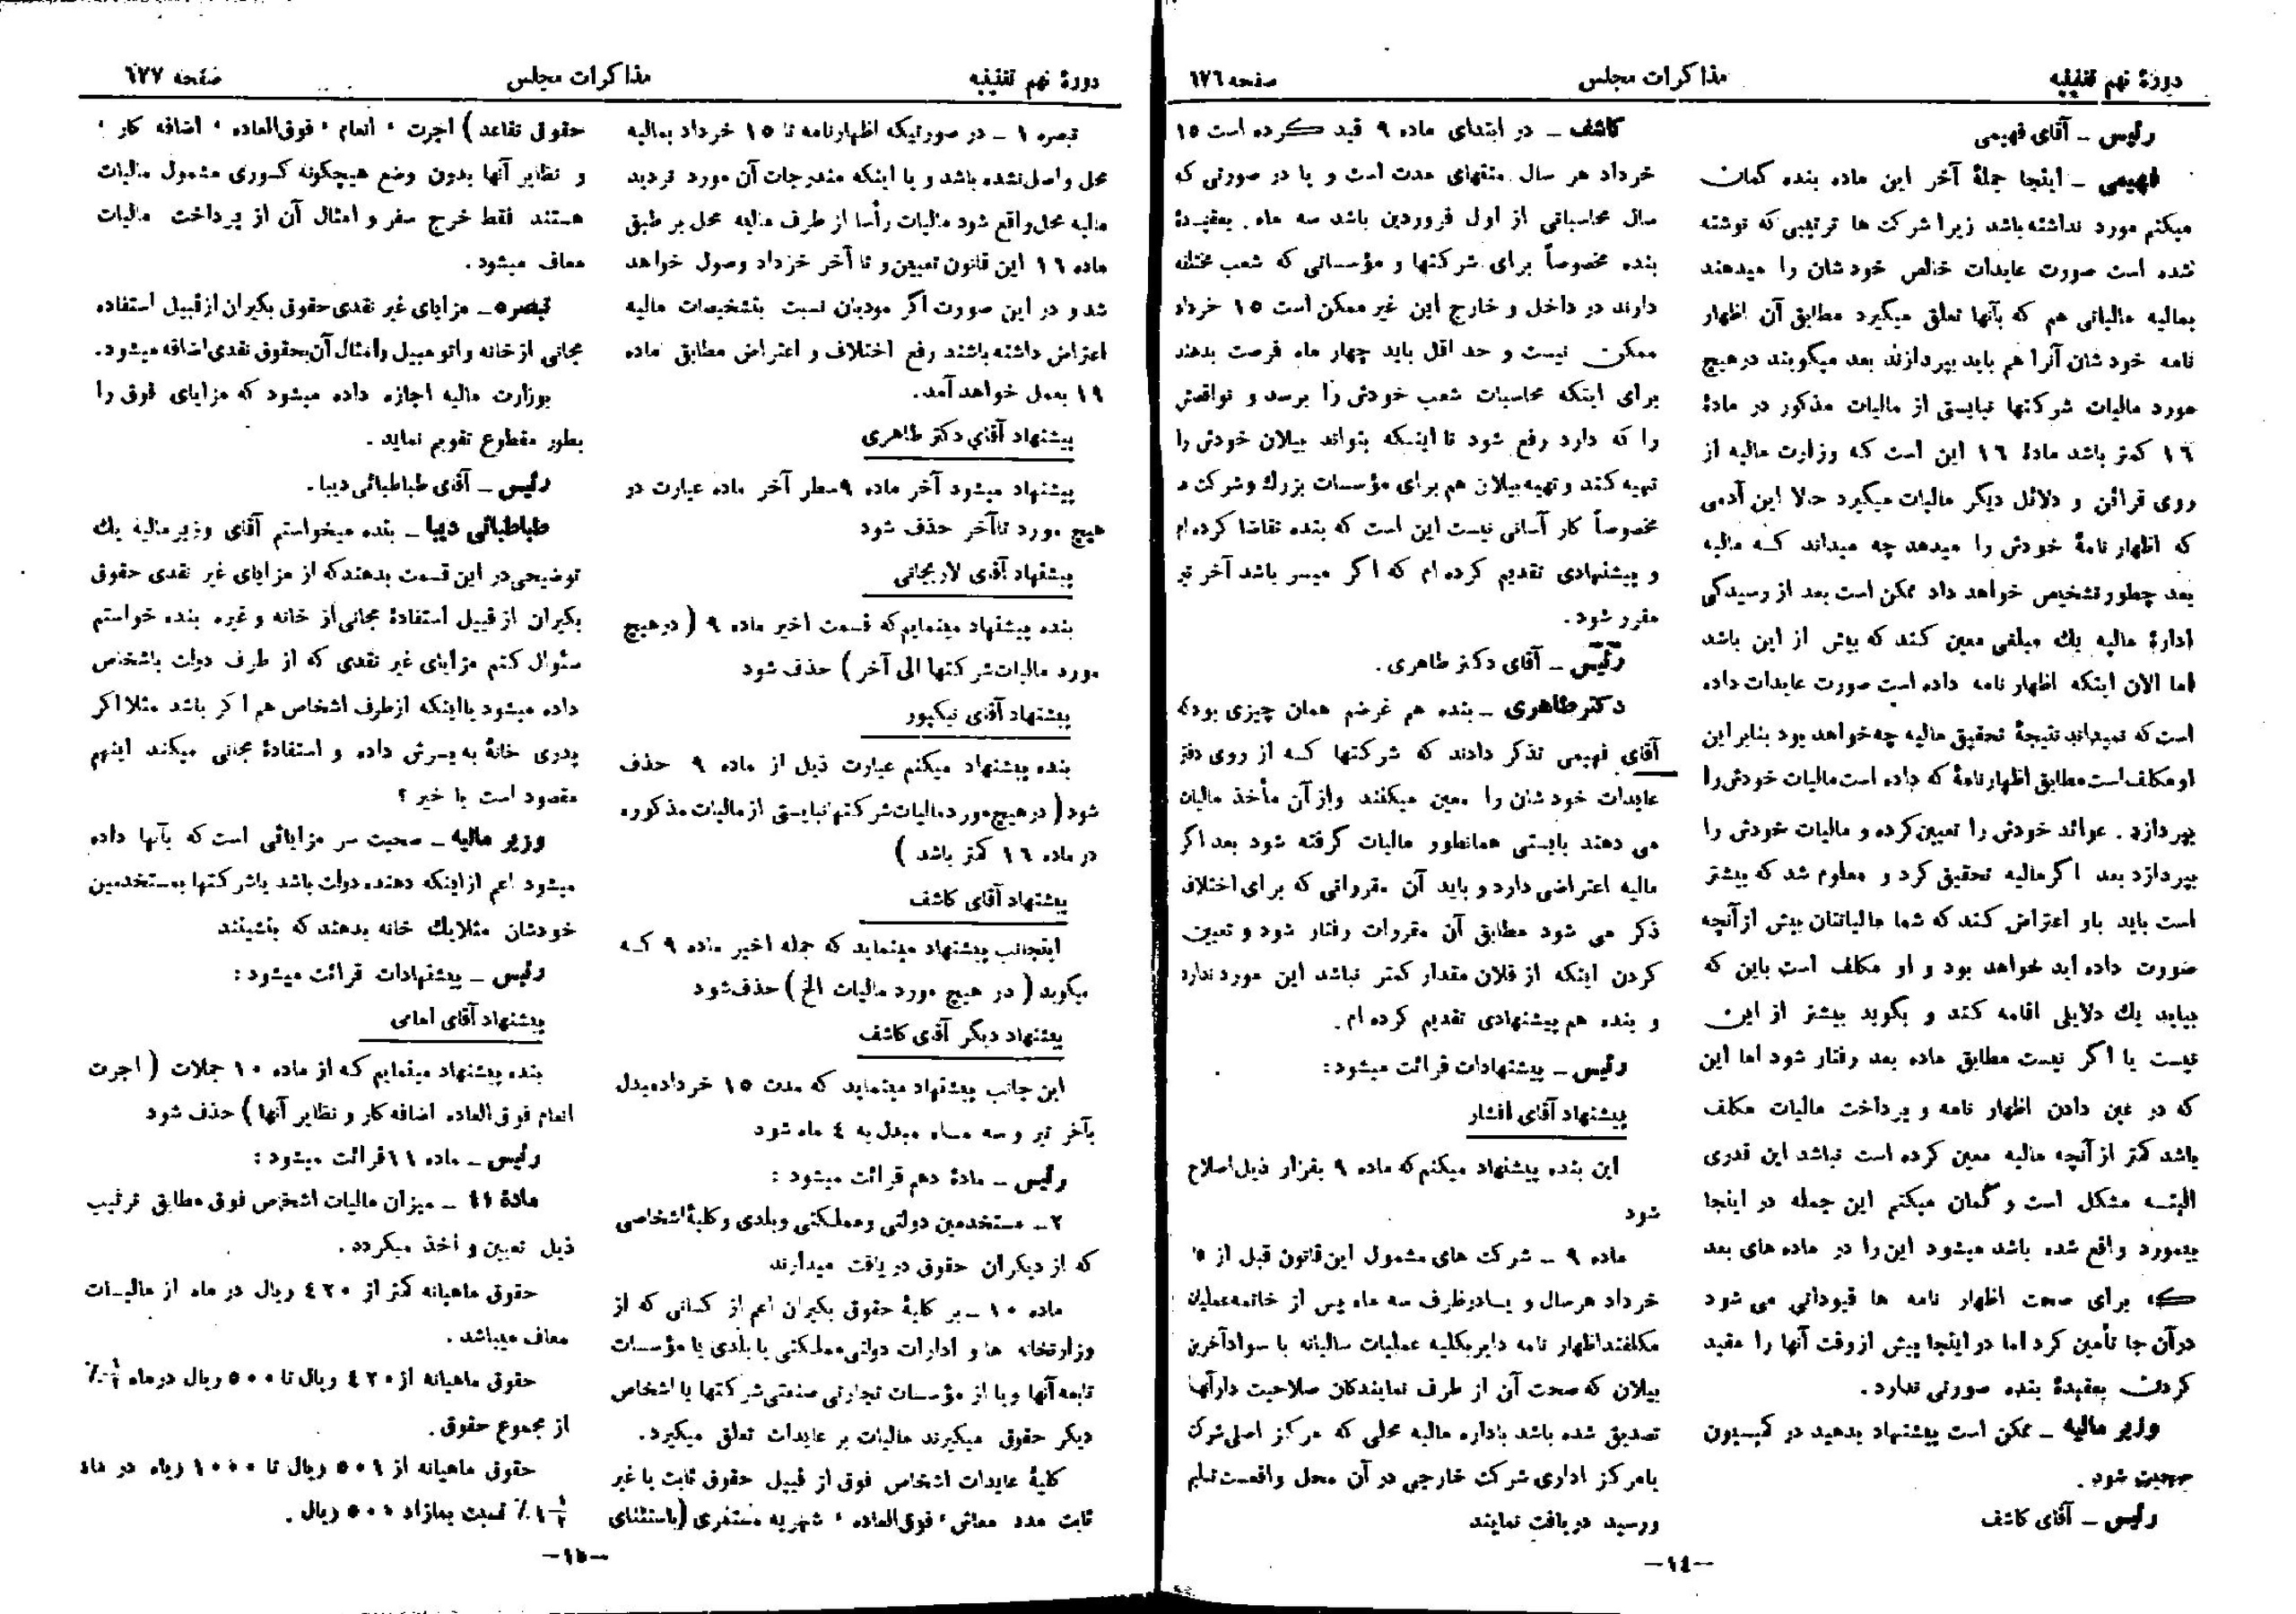 دورهٔ نهم تقنینیه
مذاکرات مجلس
صفحه ٦٧٦
رئیس ــ آقای فهیمی
فهیمی ــ اینجا جملهٔ آخر این ماده بنده گمان
میکنم مورد نداشته باشد زیرا شرکت ها ترتیبی که نوشته
شده است صورت عایدات خالص خودشان را میدهند
بمالیه مالیاتی هم که بآنها تعلق میگیرد مطابق آن اظهار
نامه خودشان آنرا هم باید بپردازند بعد میگویند درهیچ
مورد مالیات شرکتها نبایستی از مالیات مذکور در مادهٔ
١٦ کمتر باشد مادهٔ ١٦ این است که وزارت مالیه از
روی قرائن و دلائل دیگر مالیات میگیرد حالا این آدمی
که اظهارنامهٔ خودش را میدهد چه میداند که مالیه
بعد چطور تشخیص خواهد داد ممکن است بعد از رسیدگی
ادارهٔ مالیه یك مبلغی معین کند که بیش از این باشد
اما الان اینکه اظهار نامه داده است صورت عایدات داده
است که نمیداند نتیجهٔ تحقیق مالیه چه خواهد بود بنابراین
او مکلف است مطابق اظهارنامهٔ که داده است مالیات خودش را
بپردازد . عوائد خودش را تعیین کرده و مالیات خودش را
بپردازد بعد اگر مالیه تحقیق کرد و معلوم شد که بیشتر
است باید باو اعتراض کند که شما مالیاتتان بیش از آنچه
صورت داده اید خواهد بود و او مکلف است باین که
بیاید یك دلایلی اقامه کند و بگوید بیشتر از این
نیست یا اگر نیست مطابق ماده بعد رفتار شود اما این
که در عین دادن اظهار نامه و پرداخت مالیات مکلف
باشد کمتر از آنچه مالیه معین کرده است نباشد این قدری
البته مشکل است و گمان میکنم این جمله در اینجا
بیمورد واقع شده باشد میشود این را در ماده های بعد
که برای صحت اظهار نامه ها قیوداتی می شود
در آن جا تأمین کرد اما در اینجا پیش از وقت آنها را مقید
کردن بعقیدهٔ بنده صورتی ندارد .
وزیر مالیه ــ ممکن است پیشنهاد بدهید در کمیسیون
صحبت شود .
رئیس ــ آقای کاشف
کاشف ــ در ابتدای ماده ٩ قید کرده است ١٥
خرداد هر سال منتهای مدت است و یا در صورتی که
سال محاسباتی از اول فروردین باشد سه ماه . بعقیدهٔ
بنده مخصوصاً برای شرکتها و مؤسساتی که شعب مختلفه
دارند در داخل و خارج این غیر ممکن است ١٥ خرداد
ممکن نیست و حد اقل باید چهار ماه فرصت بدهند
برای اینکه محاسبات شعب خودش را برسد و نواقصش
را که دارد رفع شود تا اینکه بتواند بیلان خودش را
تهیه کند و تهیه بیلان هم برای مؤسسات بزرك و شرکت ه
مخصوصاً کار آسانی نیست این است که بنده تقاضا کرده ام
و پیشنهادی تقدیم کرده ام که اگر میسر باشد آخر تیر
مقرر شود .
رئیس ــ آقای دکتر طاهری .
دکتر طاهری ــ بنده هم غرضم همان چیزی بود که
آقای فهیمی تذکر دادند که شرکتها که از روی دفتر
عایدات خودشان را معین میکنند و از آن مأخذ مالیات
می دهند بایستی همانطور مالیات گرفته شود بعد اگر
مالیه اعتراضی دارد و باید آن مقرراتی که برای اختلاف
ذکر می شود مطابق آن مقررات رفتار شود و تعیین
کردن اینکه از فلان مقدار کمتر نباشد این مورد ندارد
و بنده هم پیشنهادی تقدیم کرده ام .
رئیس ــ پیشنهادات قرائت میشود:
پیشنهاد آقای افشار
این بنده پیشنهاد میکنم که ماده ٩ بقرار ذیل اصلاح
شود
ماده ٩ ــ شرکت های مشمول این قانون قبل از ١٥
خرداد هر سال و یا در ظرف سه ماه پس از خاتمه عملیات
مکلفند اظهار نامه دایر بکلیه عملیات سالیانه با سواد آخرین
بیلان که صحت آن از طرف نمایندگان صلاحیت دار آنها
تصدیق شده باشد باداره مالیه محلی که مرکز اصلی شرکت
یا مرکز اداری شرکت خارجی در آن محل واقعست تسلیم
و رسید دریافت نمایند
ــ١٤ــ
دورهٔ نهم تقنینیه
مذاکرات مجلس
صفحه ٦٧٧
تبصره ١ ــ در صورتیکه اظهارنامه تا ١٥ خرداد بمالیه
محل واصل نشده باشد و یا اینکه مندرجات آن مورد تردید
مالیه محل واقع شود مالیات رأسا از طرف مالیه محل بر طبق
ماده ١٦ این قانون تعیین و تا آخر خرداد وصول خواهد
شد و در این صورت اگر مودیان نسبت بتشخیصات مالیه
اعتراض داشته باشند رفع اختلاف و اعتراض مطابق ماده
١٩ بعمل خواهد آمد.
پیشنهاد آقای دکتر طاهری
پیشنهاد میشود آخر ماده ٩ سطر آخر ماده عبارت در
هیچ مورد تا آخر حذف شود
پیشنهاد آقای لاریجانی
بنده پیشنهاد مینمایم که قسمت اخیر ماده ٩ ( در هیچ
مورد مالیات شرکتها الی آخر ) حذف شود
پیشنهاد آقای نیکپور
بنده پیشنهاد میکنم عبارت ذیل از ماده ٩ حذف
شود ( در هیچ مورد مالیات شرکتها نبایستی از مالیات مذکوره
در ماده ١٦ کمتر باشد )
پیشنهاد آقای کاشف
اینجانب پیشنهاد مینماید که جمله اخیر ماده ٩ که
میگوید ( در هیچ مورد مالیات الخ ) حذف شود
پیشنهاد دیگر آقای کاشف
این جانب پیشنهاد مینماید که مدت ١٥ خرداد مبدل
بآخر تیر و سه ماه مبدل به ٤ ماه شود
رئیس ــ مادهٔ دهم قرائت میشود :
٢ــ مستخدمین دولتی و مملکتی و بلدی و کلیهٔ اشخاصی
که از دیگران حقوق دریافت میدارند
ماده ١٠ ــ بر کلیهٔ حقوق بگیران اعم از کسانی که از
وزارتخانه ها و ادارات دولتی مملکتی یا بلدی یا مؤسسات
تابعه آنها و یا از مؤسسات تجارتی صنعتی شرکتها یا اشخاص
دیگر حقوق میگیرند مالیات بر عایدات تعلق میگیرد.
کلیهٔ عایدات اشخاص فوق از قبیل حقوق ثابت یا غیر
ثابت مدد معاش ، فوق العاده ، شهریه مستمری (باستثنای
حقوق تقاعد ) اجرت ، انعام ، فوق العاده ، اضافه کار ،
و نظایر آنها بدون وضع هیچگونه کسوری مشمول مالیات
هستند فقط خرج سفر و امثال آن از پرداخت مالیات
معاف میشود .
تبصره ــ مزایای غیر نقدی حقوق بگیران از قبیل استفاده
مجانی از خانه و اتومبیل و امثال آن بحقوق نقدی اضافه میشود.
بوزارت مالیه اجازه داده میشود که مزایای فوق را
بطور مقطوع تقویم نماید .
رئیس ــ آقای طباطبائی دیبا .
طباطبائی دیبا ــ بنده میخواستم آقای وزیر مالیه یك
توضیحی در این قسمت بدهند که از مزایای غیر نقدی حقوق
بگیران از قبیل استفادهٔ مجانی از خانه و غیره بنده خواستم
سئوال کنم مزایای غیر نقدی که از طرف دولت باشخاص
داده میشود یا اینکه از طرف اشخاص هم اگر باشد مثلا اگر
پدری خانهٔ به پسرش داده و استفادهٔ مجانی میکند اینهم
مقصود است یا خیر ؟
وزیر مالیه ــ صحبت سر مزایائی است که بآنها داده
میشود اعم از اینکه دهنده دولت باشد یا شرکتها بمستخدمین
خودشان مثلا یك خانه بدهند که بنشینند
رئیس ــ پیشنهادات قرائت میشود :
پیشنهاد آقای امامی
بنده پیشنهاد مینمایم که از ماده ١٠ جملات ( اجرت
انعام فوق العاده اضافه کار و نظایر آنها ) حذف شود
رئیس ــ ماده ١١ قرائت میشود :
مادهٔ ١١ ــ میزان مالیات اشخاص فوق مطابق ترتیب
ذیل تعیین و اخذ میگردد .
حقوق ماهیانه کمتر از ٤٢٠ ریال در ماه از مالیات
معاف میباشد .
حقوق ماهیانه از ٤٢٠ ریال تا ٥٠٠ ریال در ماه ١/٢٪
از مجموع حقوق .
حقوق ماهیانه از ٥٠١ ریال تا ١٠٠٠ ریال در ماه
١ ١/٢٪ نسبت بمازاد ٥٠٠ ریال .
ــ١٥ــ